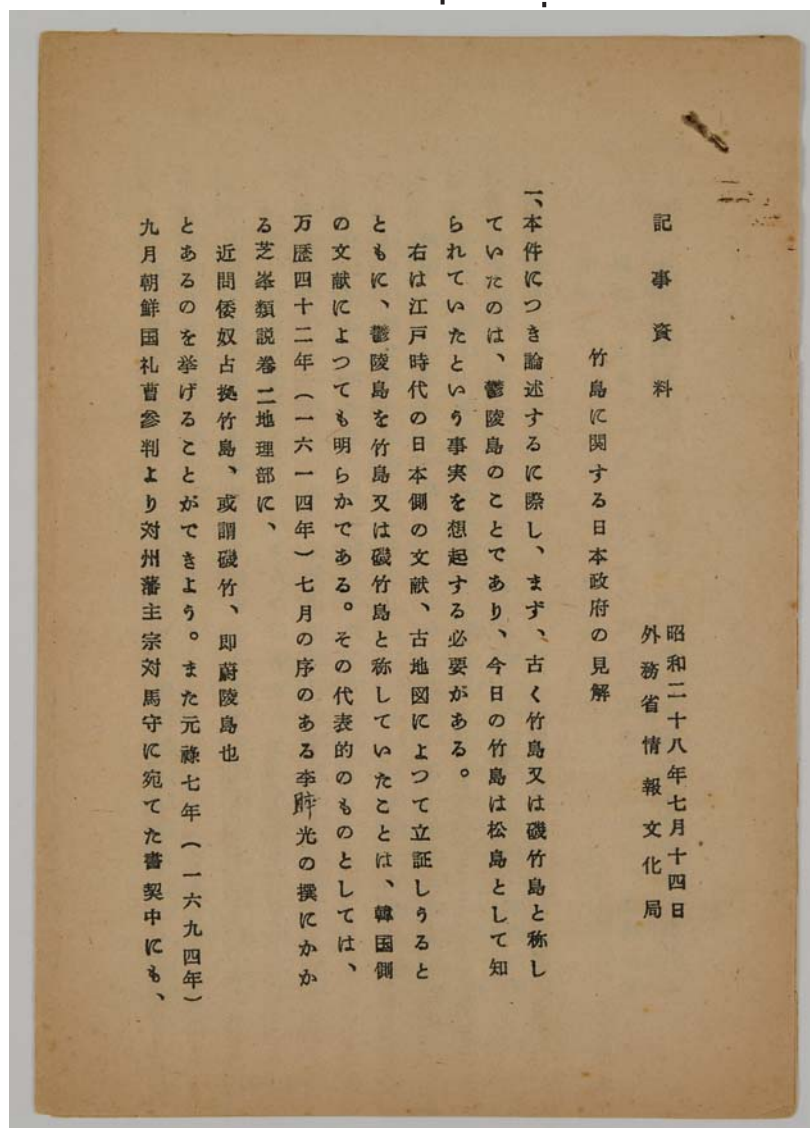 記事資料
昭和二十八年七月十四日
外務省情報文化局
竹島に関する日本政府の見解
一、本件につき論述するに際し、まず、古く竹島又は磯竹島と称し
ていたのは、鬱陵島のことであり、今日の竹島は松島として知
られていたという事実を想起する必要がある。
右は江戸時代の日本側の文献、古地図によつて立証しうると
ともに、鬱陵島を竹島又は磯竹島と称していたことは、韓国側
の文献によつても明らかである。その代表的のものとしては、
万歴四十二年（一六一四年）七月の序のある李晬光の撰にかか
る芝峯類説巻二地理部に、
近聞倭奴占拠竹島、或謂磯竹、即蔚陵島也
とあるのを挙げることができよう。また元祿七年（一六九四年）
九月朝鮮国礼曹参判より対州藩主宗対馬守に宛てた書契中にも、